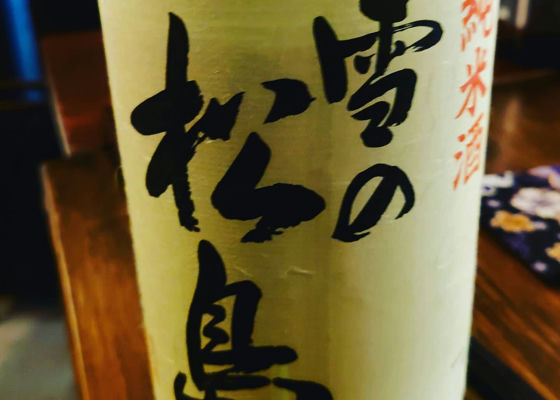 純米酒
雪の
松島